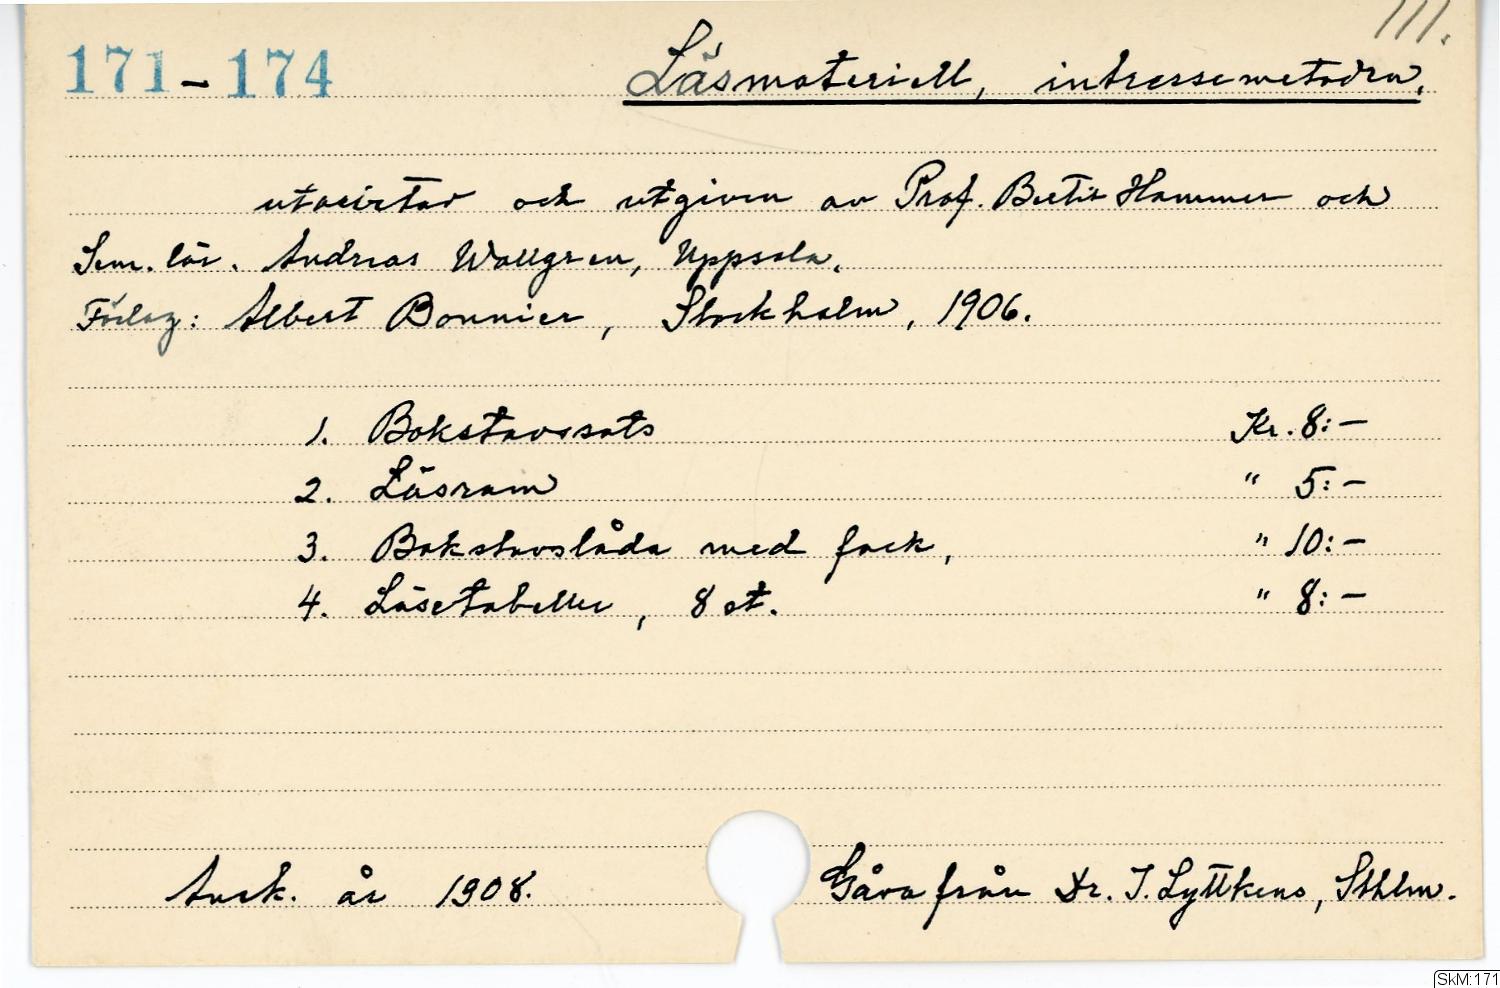 III.
171-174 Läsmateriell, intressemetoden.
utarbetad och utgiven av Prof. Bertil Hammer och
Sem. lär. Andreas Wallgren, Uppsala.
Förlag: Albert Bonnier, Stockholm, 1906.
1. Bokstavssats Kr. 8:-
2. Läsram " 5:-
3. Bokstavslåda med fack, " 10:-
4. Läsetabeller, 8 st. " 8:-
Ansk. år 1908. Gåva från Dr. I. Lyttkens, Sthlm.
SkM:171